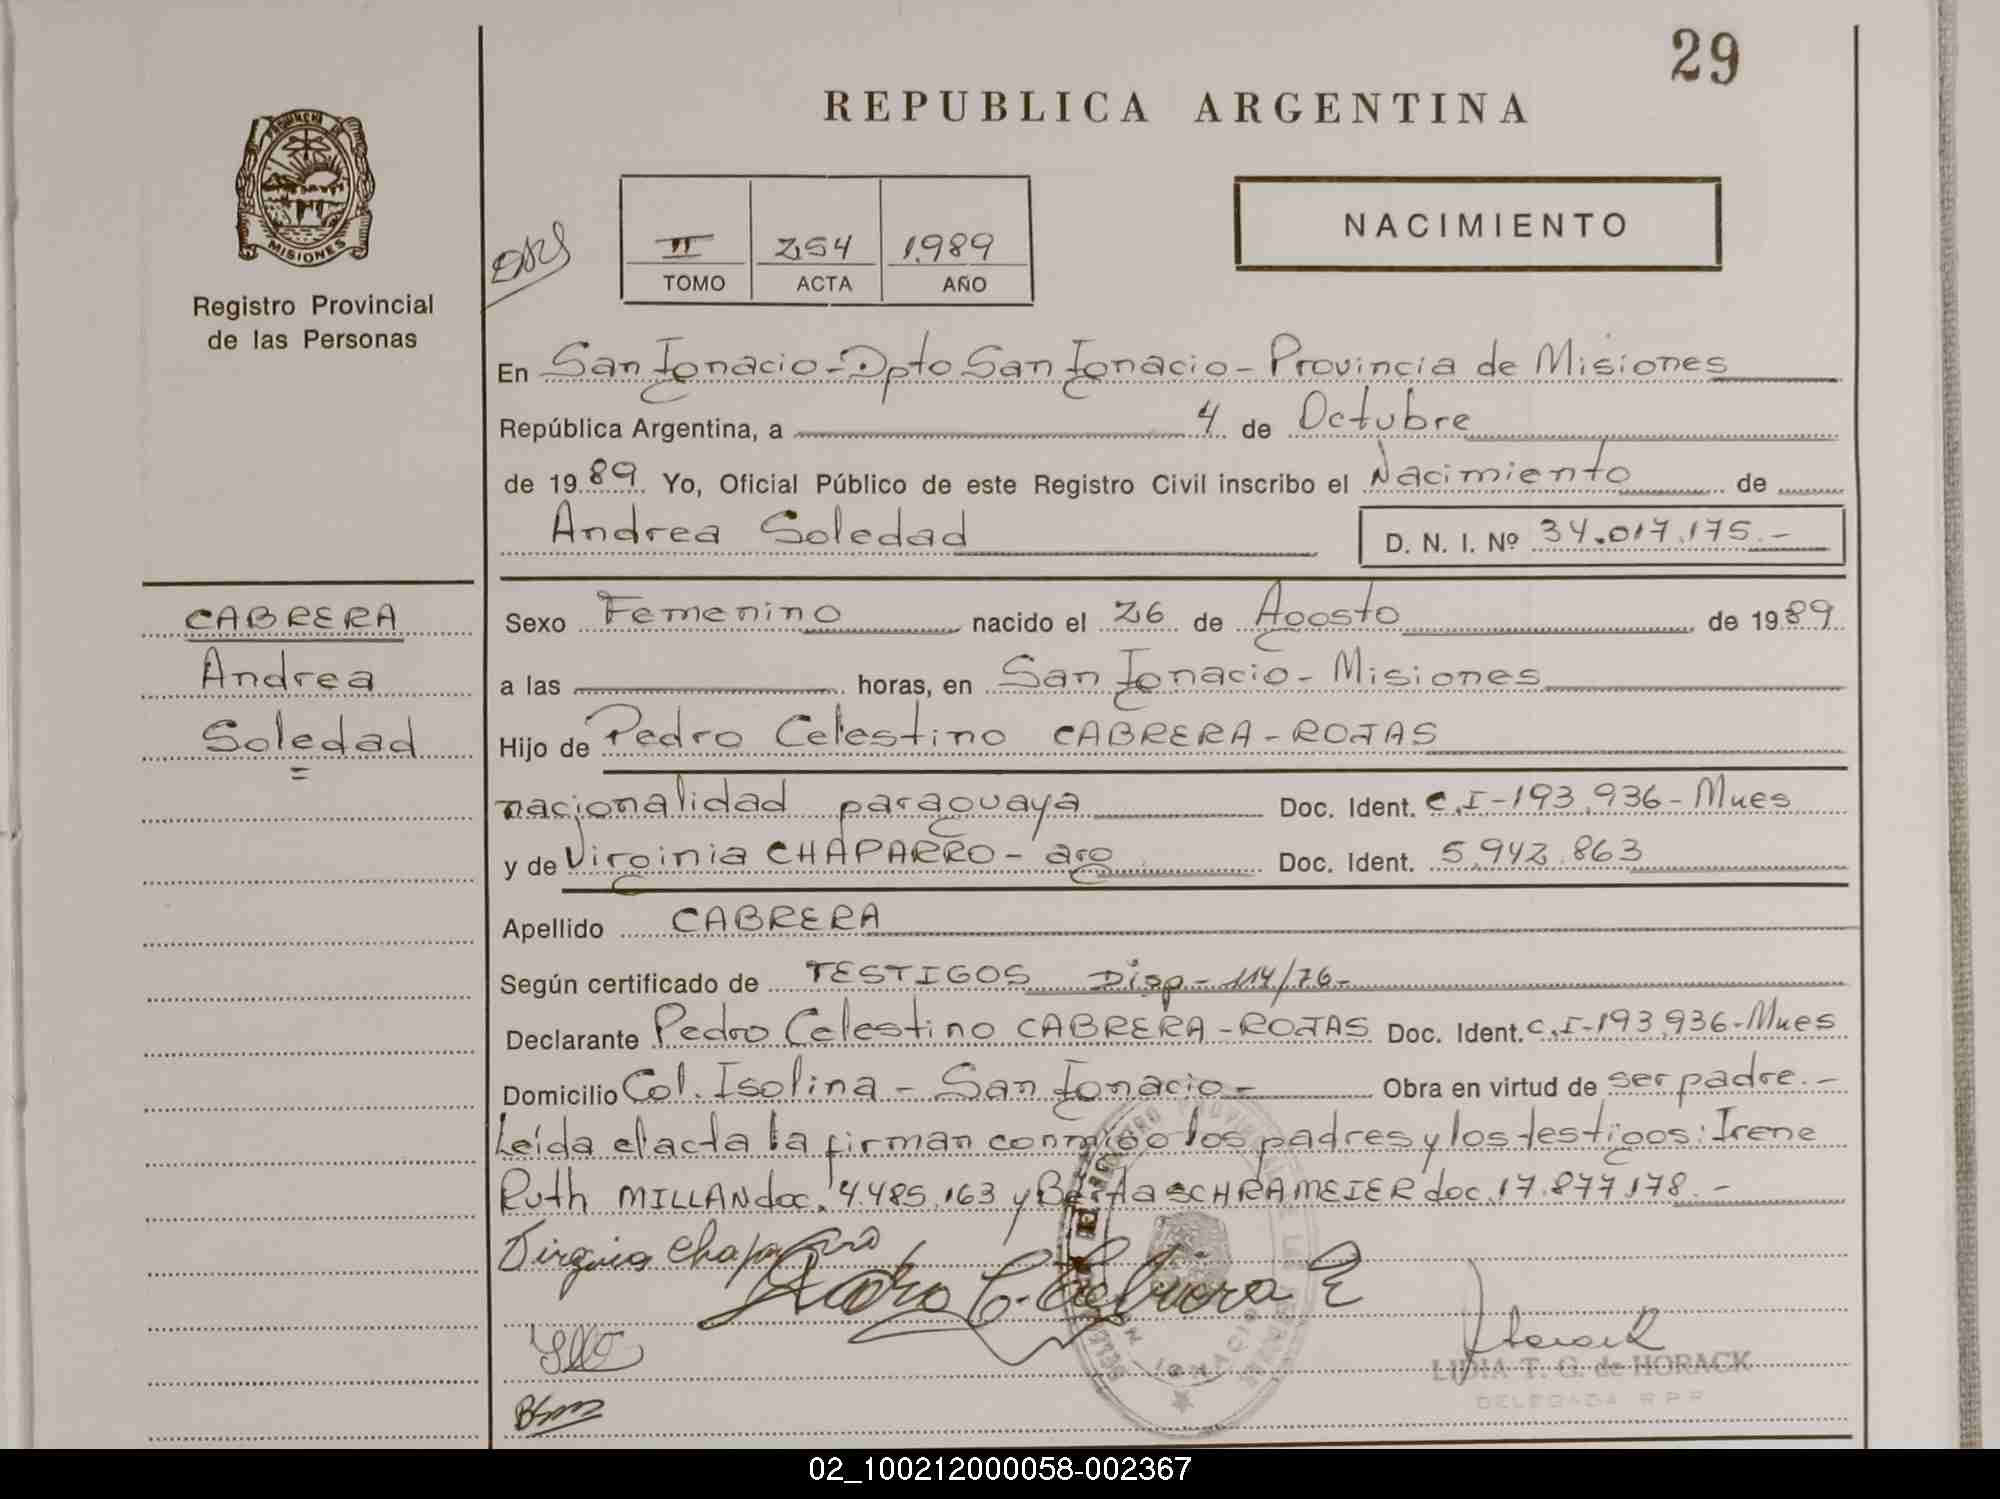 29
REPUBLICA ARGENTINA
PROVINCIA DE
MISIONES
Registro Provincial
de las Personas
II 254 1989
TOMO ACTA AÑO
NACIMIENTO
En San Ignacio - Dpto San Ignacio - Provincia de Misiones
República Argentina, a 4 de Octubre
de 19 89 Yo, Oficial Público de este Registro Civil inscribo el Nacimiento de
Andrea Soledad D. N. I. Nº 34.017.175.-
CABRERA
Andrea
Soledad
=
Sexo Femenino nacido el 26 de Agosto de 19 89
a las horas, en San Ignacio - Misiones
Hijo de Pedro Celestino CABRERA - ROJAS
nacionalidad paraguaya Doc. Ident. C.I - 193.936 - Mnes
y de Virginia CHAPARRO - arg Doc. Ident. 5.942.863
Apellido CABRERA
Según certificado de TESTIGOS Disp - 114/76 -
Declarante Pedro Celestino CABRERA - ROJAS Doc. Ident. C.I - 193.936 - Mnes
Domicilio Col. Isolina - San Ignacio - Obra en virtud de ser padre. -
Leída el acta la firman conmigo los padres y los testigos: Irene
Ruth MILLAN doc. 4.485.163 y Berta SCHRAMEIER doc. 17.877.178. -
Virginia Chaparro
Pedro C. Cabrera R
Horack
LIDIA T. G. de HORACK
DELEGADA R.P.P.
02_100212000058-002367